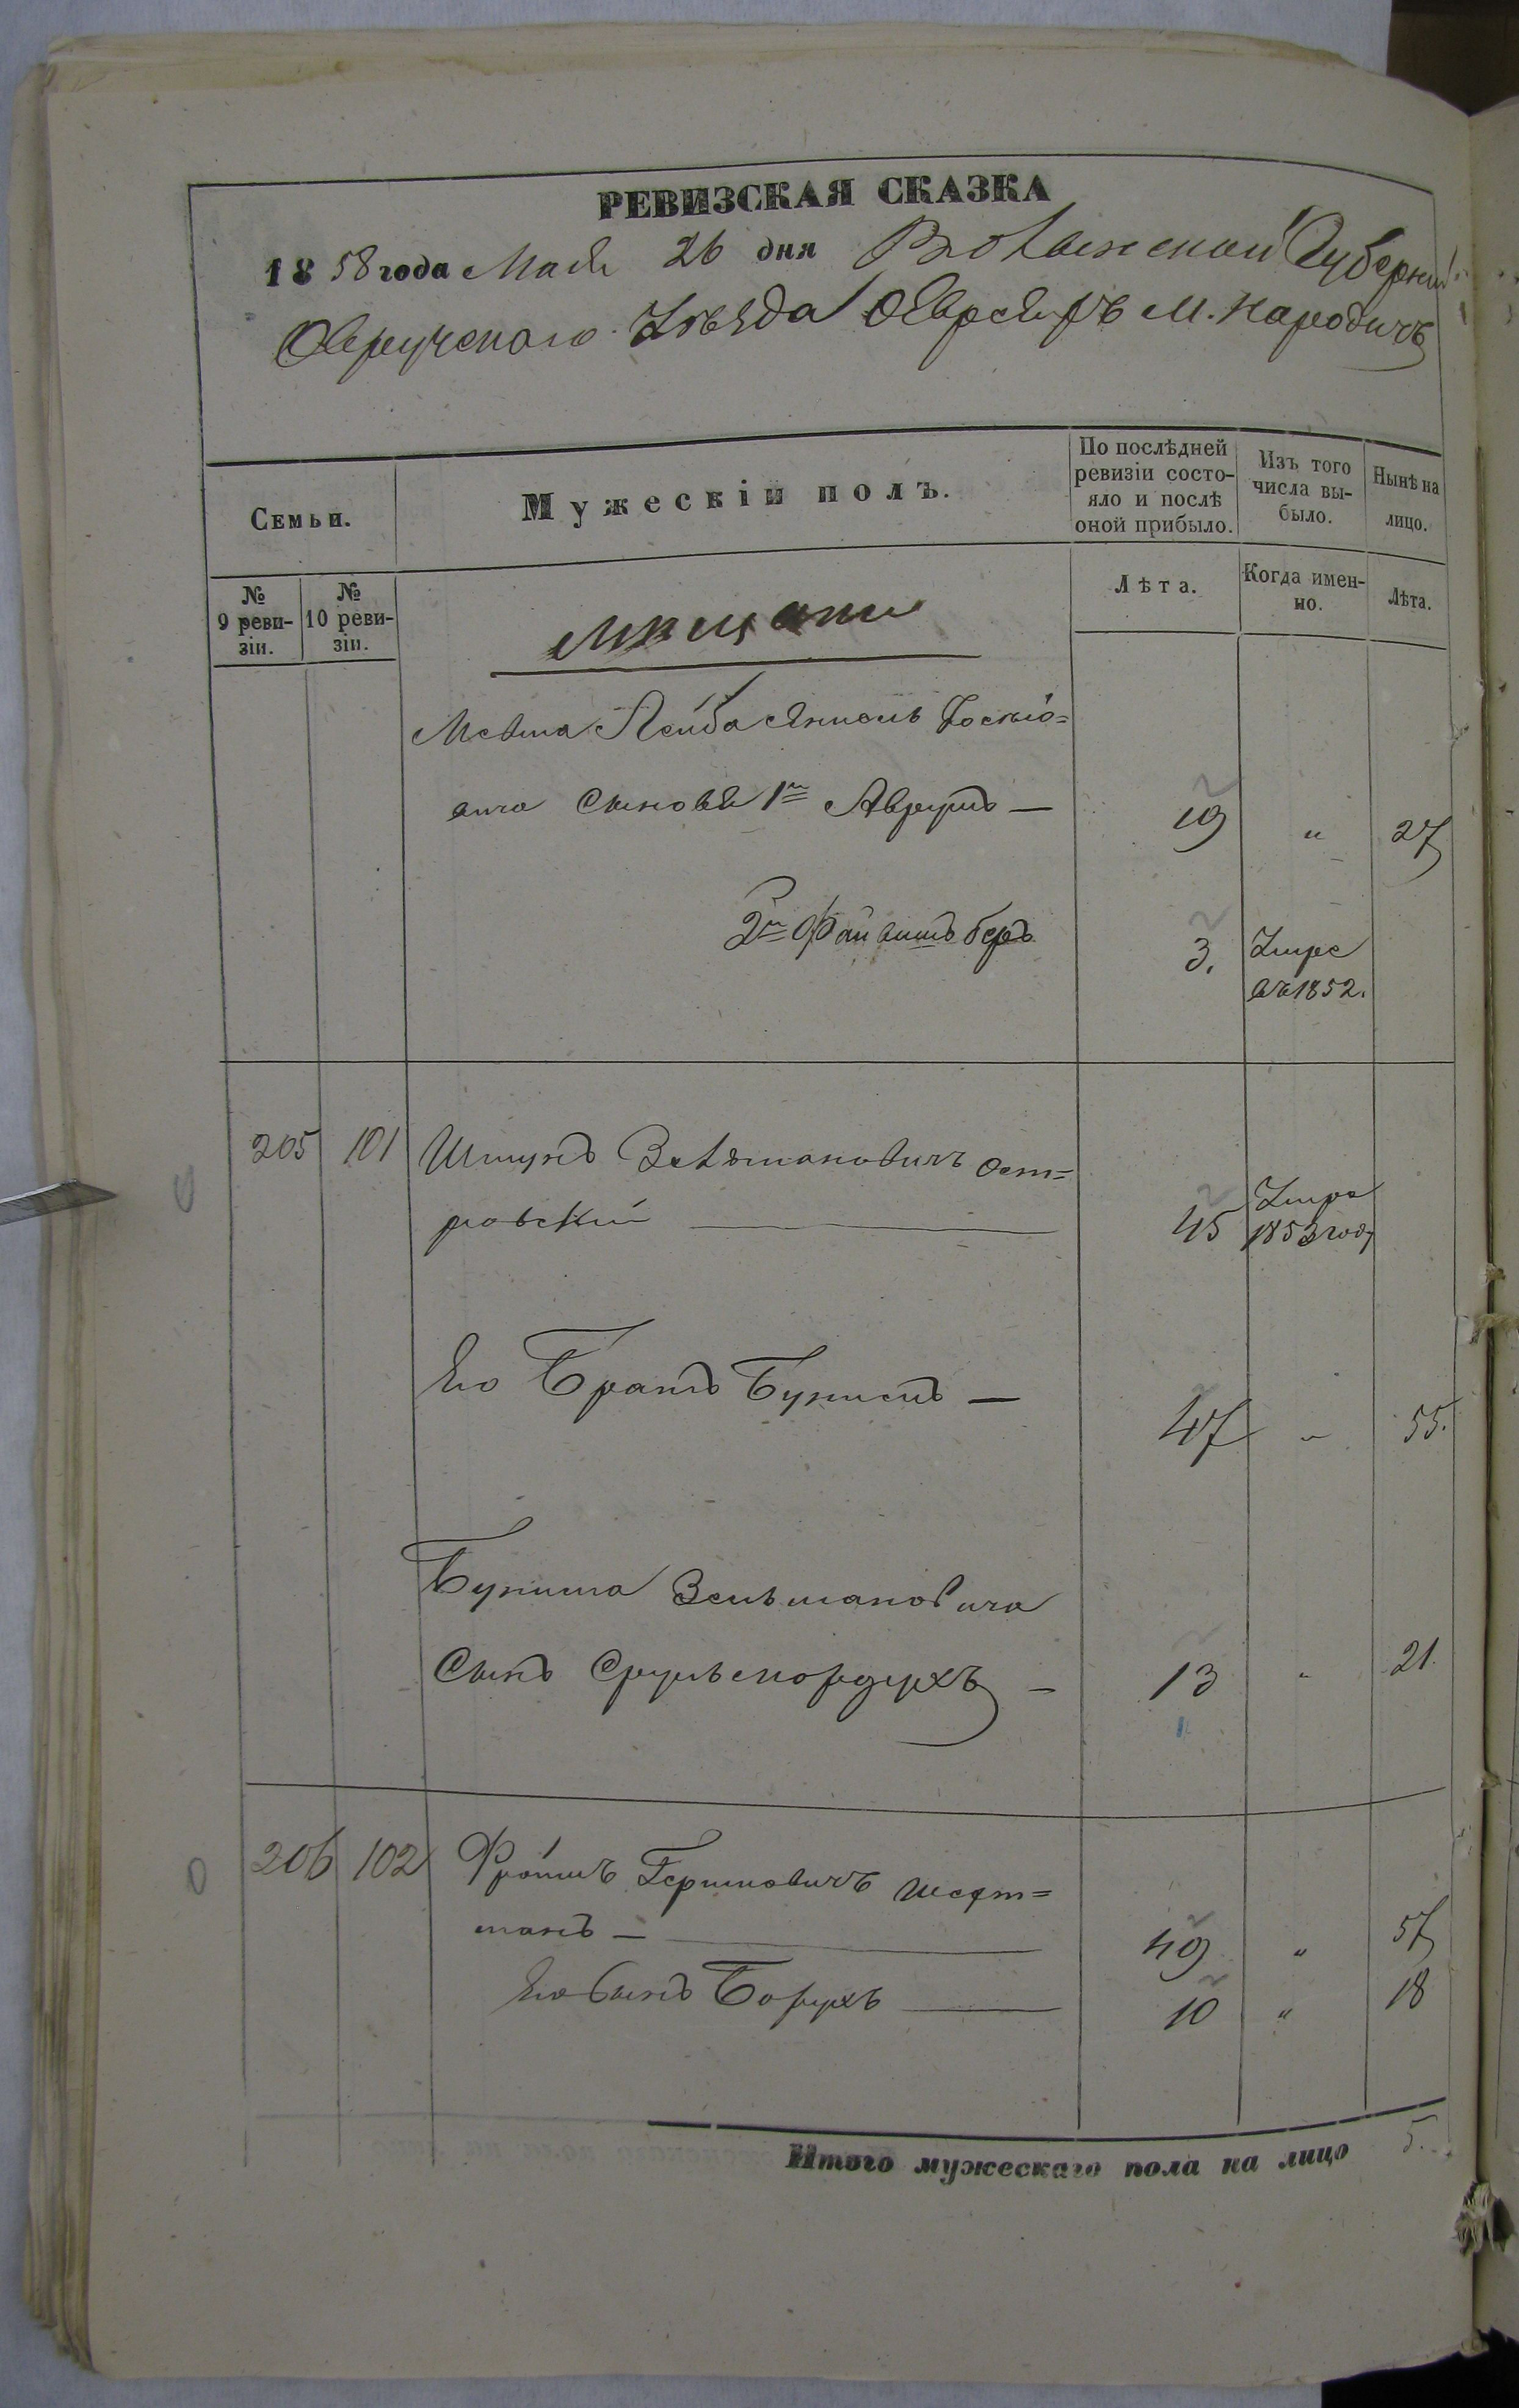 РЕВИЗСКАЯ СКАЗКА
1858 года Мая 26 дня Волынской Губерніи
Овручскаго Уѣзда Евреяхъ М. Народичъ
Семьи.
Мужескій полъ.
По послѣдней ревизіи состо-
яло и послѣ
оной прибыло.
Изъ того
числа вы-
было.
Нынѣ на
лицо.
№
9 реви-
зіи.
№
10 реви-
зіи.
Мѣщане
Лѣта.
Когда имен-
но.
Лѣта.
Лейба Янкель
вича Сыновья 1й Аврумъ — 19 " 27
2й Файвишъ беръ 3. Умре
въ 1852.
205 101 Зельмановичъ Ост=
ровскій — 45 Умре
1853 году
Его Братъ Бунимъ — 47 " 55.
Бунима Зельмановича
Сынъ Срульмордухъ — 13 " 21.
206 102 Фроимъ Гершковичъ
манъ — 49 " 57
Его Сынъ Борухъ — 10 " 18
Итого мужескаго пола на лицо 5.